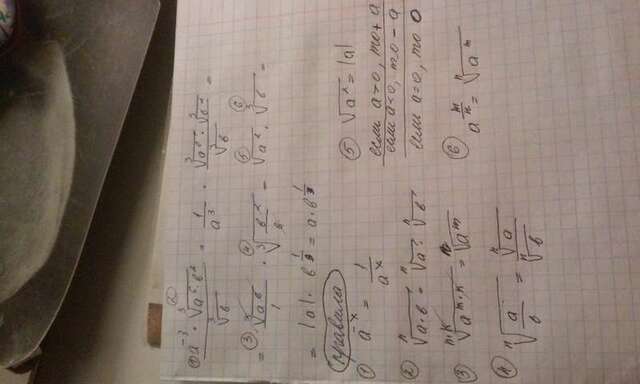 ②
① a⁻³ · ∛(a⁶ · b²) / ∛b = 1/a³ · ∛(a⁶) · ∛(b²) / ∛b =
= ③ ∛(a⁶)/1 · ④ ∛(b²/b) = ⑤ √(a²) · ⑥ ∛b =
= |a| · b^(1/3) = a · b^(1/3)
правила
① a⁻ˣ = 1/aˣ
② ⁿ√(a·b) = ⁿ√a · ⁿ√b
③ ᵐ·ᵏ√(a^(m·k)) = √(aᵐ)
④ ⁿ√(a/b) = ⁿ√a / ⁿ√b
⑤ √(a²) = |a|
если a>0, то + a
если a<0, то - a
если a=0, то 0
⑥ a^(m/n) = ⁿ√(aᵐ)